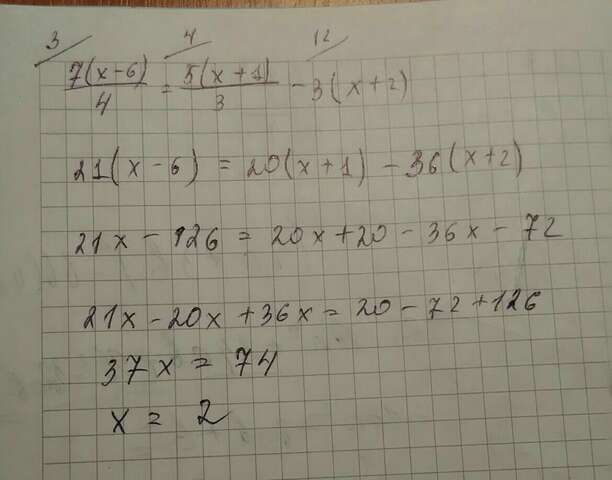 3/ 4/ 12/
7(x-6)/4 = 5(x+1)/3 - 3(x+2)
21(x-6) = 20(x+1) - 36(x+2)
21x - 126 = 20x + 20 - 36x - 72
21x - 20x + 36x = 20 - 72 + 126
37x = 74
x = 2